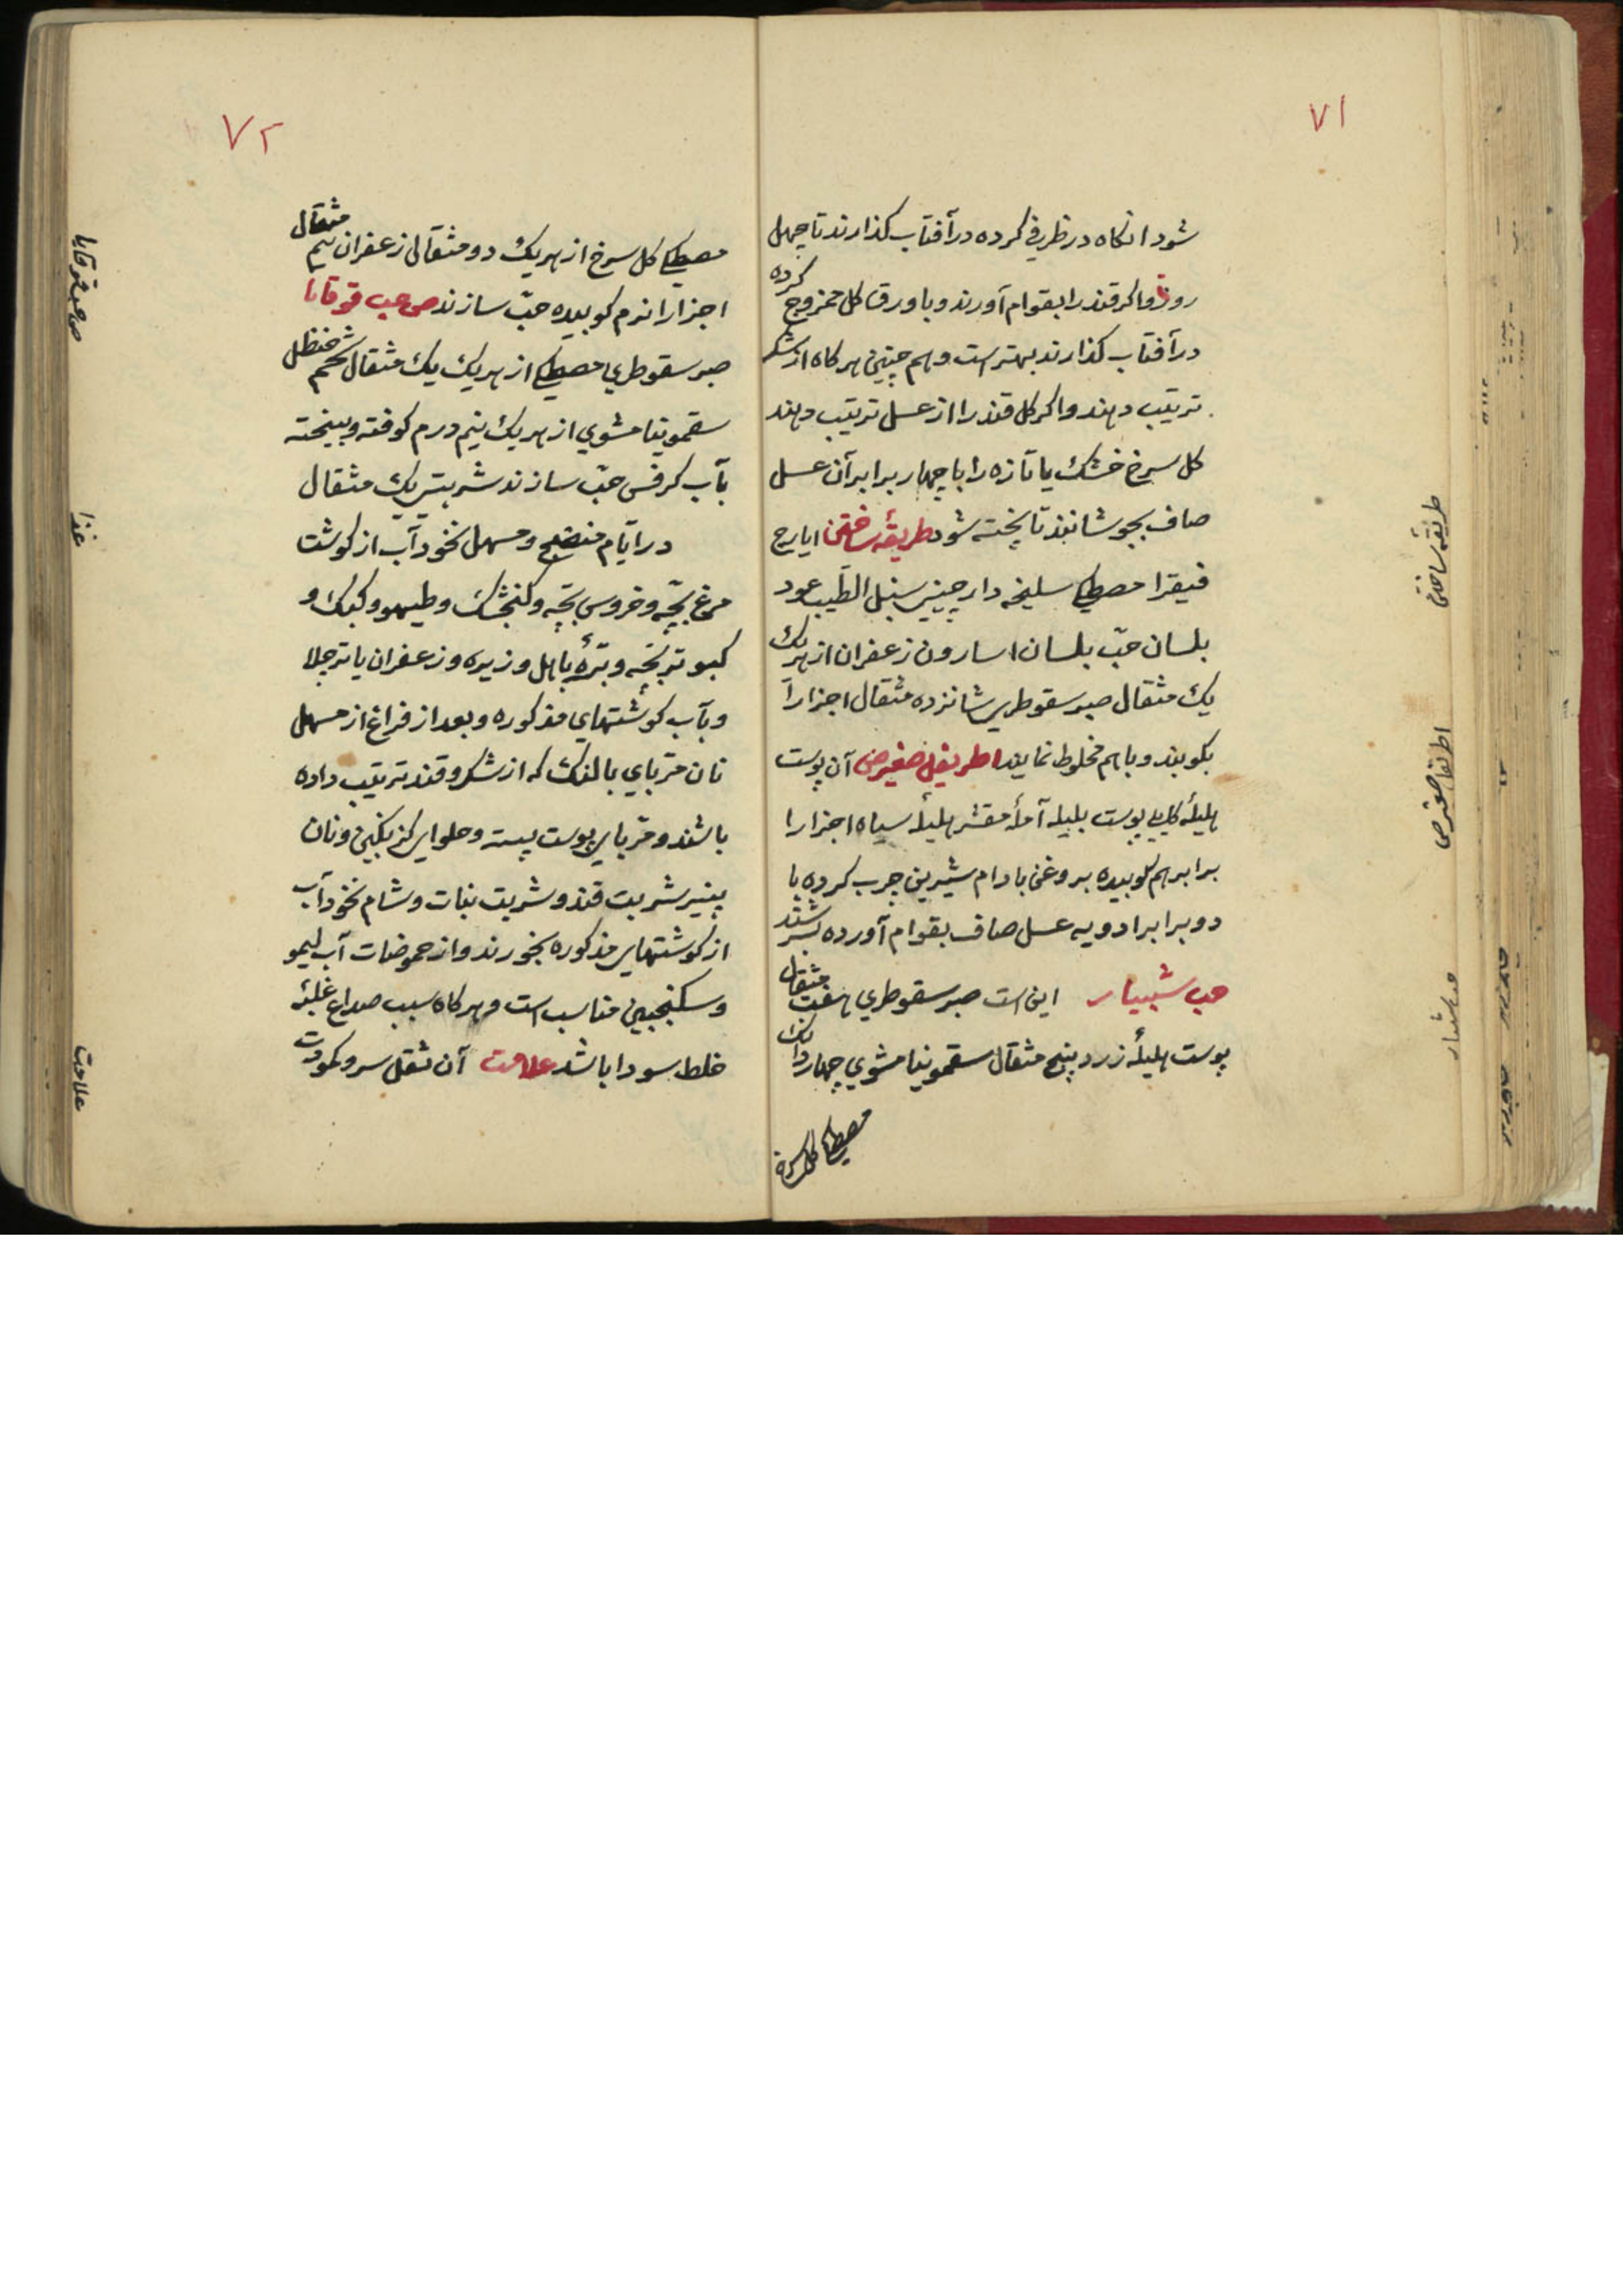 ۷۱
شود انکاه در ظرفی کرده در آفتاب کذارند تا چهل
روز و اکر قند را بقوام آورند و با ورق کل ممزوج کرده
در آفتاب کذارند بهتر است و هم چنین هر کاه از شکر
ترتیب دهند و اکر کل قند را از عسل ترتیب دهند
کل سرخ خشک یا تازه را با چهار برابر آن عسل
صاف بجوشانند تا پخته شود طریقهٔ ساختن ایارج
فیقرا مصطکی سلیخه دار چینی سنبل الطّیب عود
بلسان حبّ بلسان اسارون زعفران از هریک
یک مثقال صبر سقوطری شانزده مثقال اجزا را
بکوبند و باهم مخلوط نمایند اطریفل صغیر ص آن پوست
هلیلهٔ کابلی پوست بلیله آملهٔ مقشر هلیلهٔ سیاه اجزا را
برابر هم کوبیده بروغن بادام شیرین چرب کرده با
دو برابر ادویه عسل صاف بقوام آورده بسرشند
حب شبیار این است صبر سقوطری هفت مثقال
پوست هلیلهٔ زرد پنج مثقال سقمونیا مشوی چهار دانک
مصطکی کل سرخ
طریقه ساختن
اطریفل صغیر ص
حب شبیار
۷۲
مصطکی کل سرخ از هریک دو مثقال زعفران نیم مثقال
اجزا را نرم کوبیده حبّ سازند ص حب قوقایا
صبر سقوطری مصطکی از هریک یک مثقال شحم حنظل
سقمونیا مشوی از هریک نیم درم کوفته و بیخته
بآب کرفس حبّ سازند شربتی یک مثقال
در ایّام منضج و مسهل نخود آب از کوشت
مرغ بچّه و خروس بچّه و کنجشک و طیهو و کبک و
کبوتر بچّه و برّهٔ با هل و زیره و زعفران یا تر جلا
و بآب کوشتهای مذکوره و بعد از فراغ از مسهل
نان مربّای بالنک که از شکر و قند ترتیب داده
باشند و مربّای پوست پسته و حلوای کزنکبین و نان
پنیر شربت قند و شربت نبات و شام نخود آب
از کوشتهای مذکوره بخورند و از حموضات آب لیمو
و سکنجبین مناسب است و هر کاه سبب صداع غلبهٔ
خلط سودا باشد علامت آن ثقل سر و کمودت
ص حب قوقایا
غذا
علامت